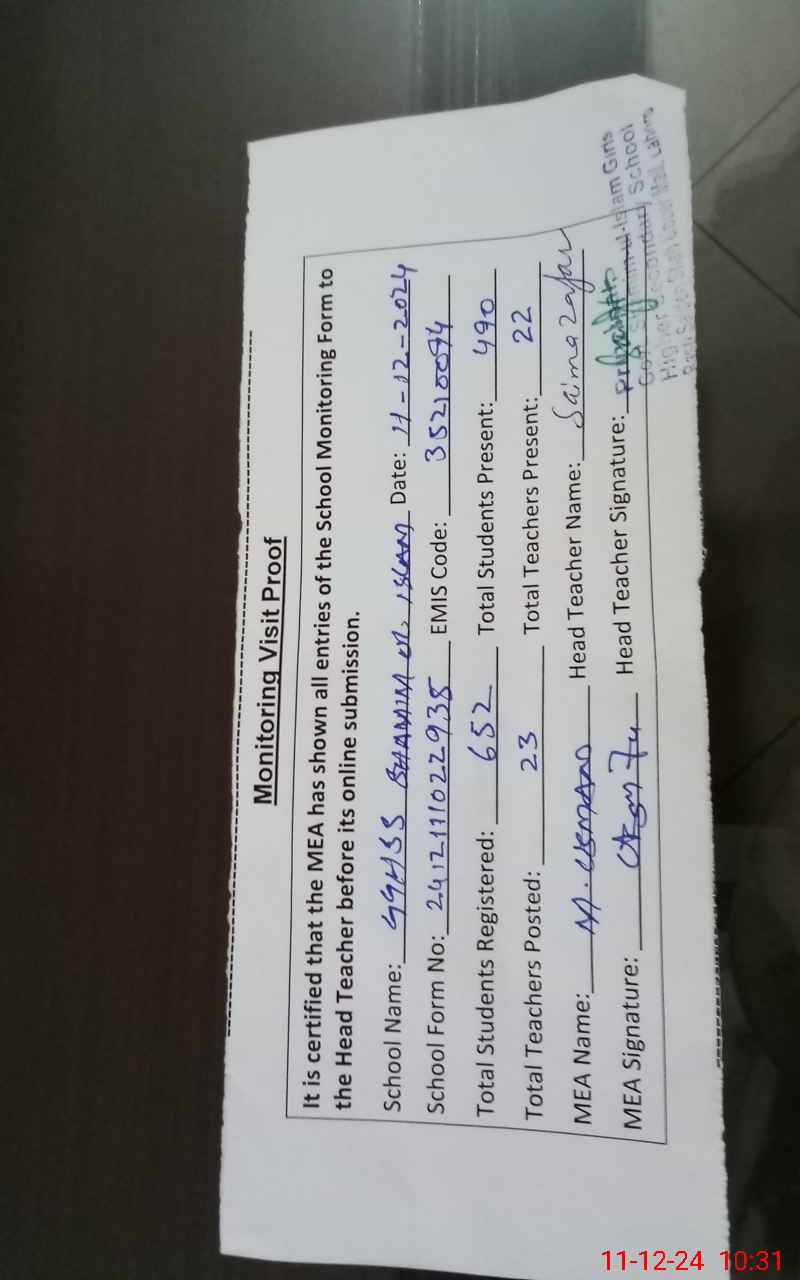 Monitoring Visit Proof
It is certified that the MEA has shown all entries of the School Monitoring Form to
the Head Teacher before its online submission.
School Name: GGHSS BHAMIM UL ISLAM Date: 11-12-2024
School Form No: 2412111022935 EMIS Code: 35210094
Total Students Registered: 652 Total Students Present: 490
Total Teachers Posted: 23 Total Teachers Present: 22
MEA Name: M. USMAN Head Teacher Name: Saima Zafar
MEA Signature: Head Teacher Signature:
ul-Islam Girls
Higher Secondary School
Lahore
11-12-24 10:31